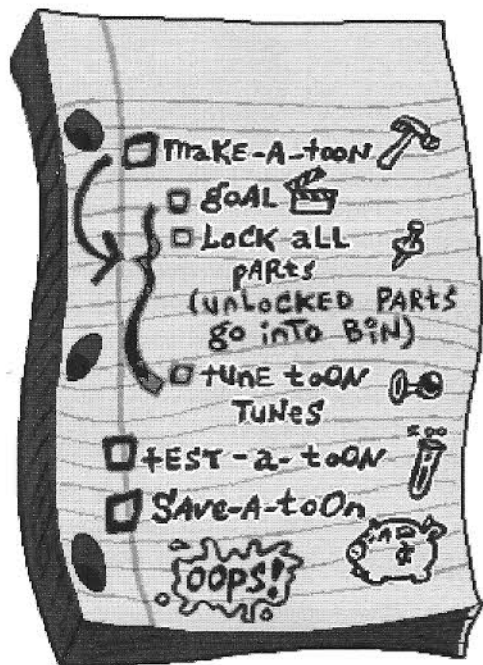 MaKE-A-tooN
goAL
LocK aLL
pARts
(unLocKED PARts
go inTo BiN)
tUnE tooN
TUNes
tEST-a-tooN
SAve-A-toOn
OOPS!